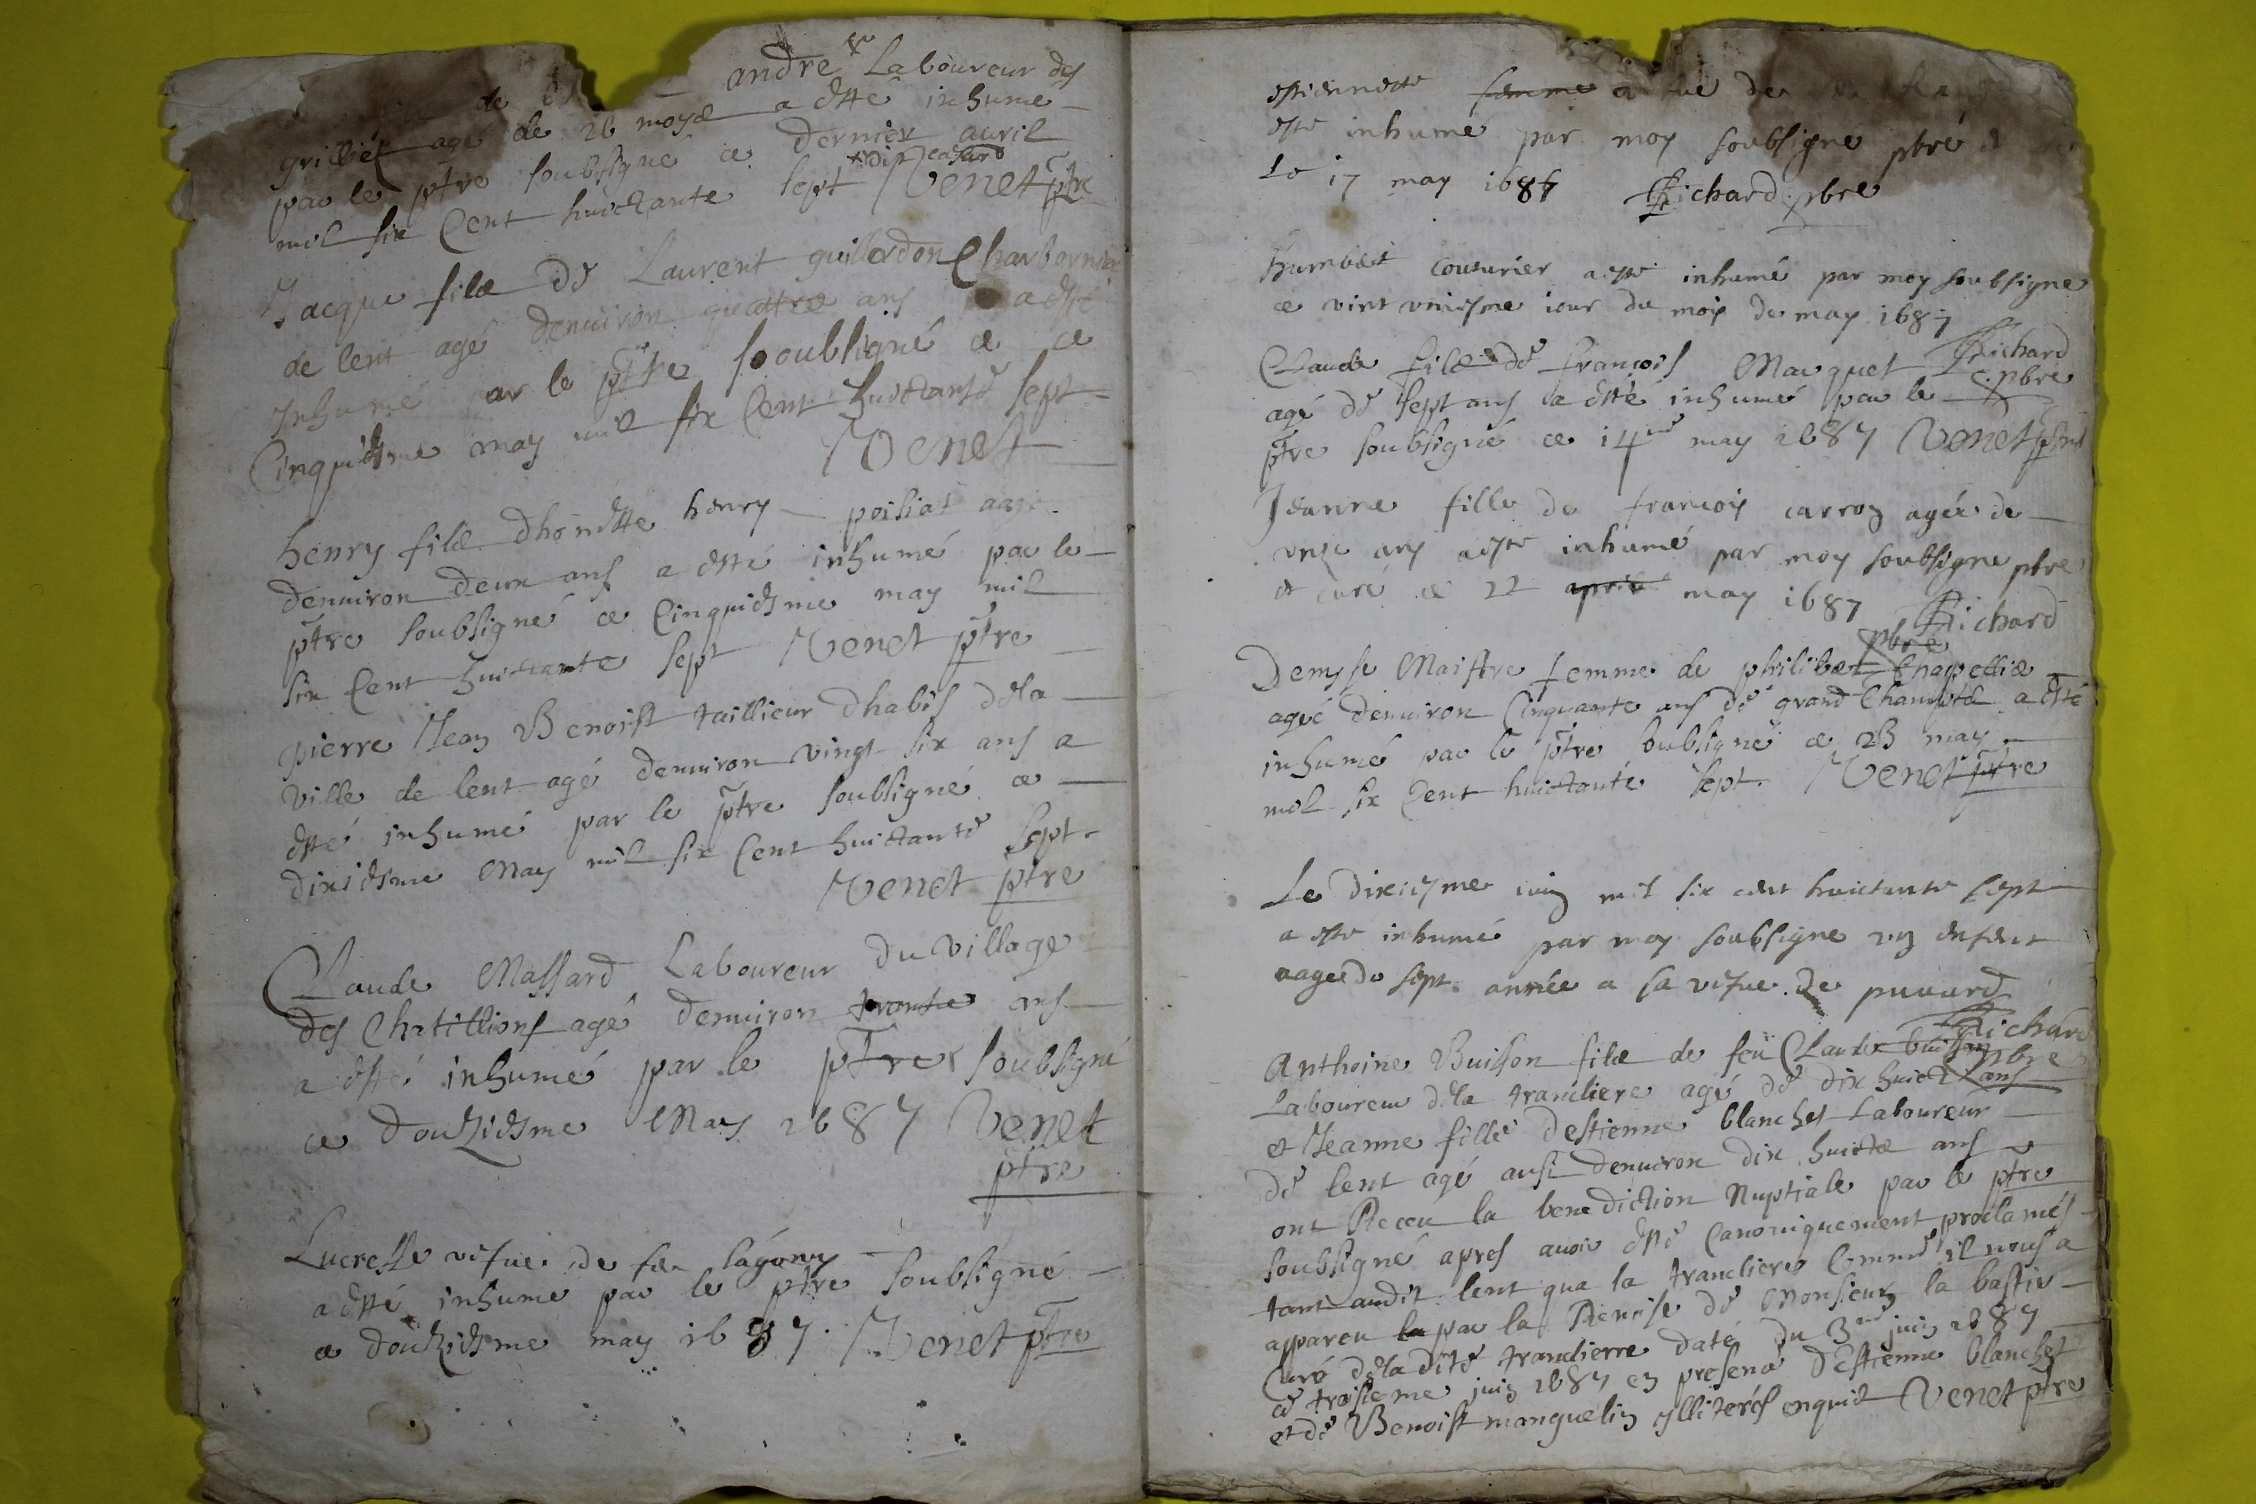 de andre Laboureur des
grilliés agé de 26 moys a esté inhume
par le ptre soubsigné ce dernier auril
mil six Cent huictante sept Venet ptre
Jacque filz de Laurent guillerdon Charbonnier
de lent agé denuiron quattre ans a esté
Inhumé par le ptre sooubsigné ce ce
Cinquiesme may mil six Cent huictante sept
Venet
henry filz dhonestte henry poisiat agé
denuiron deux ans a esté inhumé par le
ptre soubsigné ce Cinquiesme may mil
six Cent huictante sept Venet ptre
pierre Jean Benoist taillieur dhabis dela
ville de lent agé denuiron vingt six ans a
esté inhumé par le ptre soubsigné ce
dixiesme May mil six Cent huictante sept
Venet ptre
Claude Massard Laboureur du village
des Chatillions agé denuiron trante ans
a esté inhumé par le ptre soubsigné
ce douziesme May 1687 Venet
ptre
Lucresse vefue de feu lagouy
a esté inhume par le ptre soubsigné
ce douziesme may 1687 Venet ptre
estiennette femme a fue de
este inhumé par moy soubsigne pbre
Le 17 may 1687 Richard pbre
humbert Couturier a este inhumé par moy soubsigne
ce vint vniesme iour du mois de may 1687
Richard
pbre
Claude filz de francois Macquet
agé de sept ans a esté inhumé par le
ptre soubsigné ce 14me may 1687 Venet ptre
Jeanne fille de francois carron agée de
vnze ans a este inhumé par moy soubsigne pbre
et curé ce 22 april may 1687 Richard
pbre
Denyse Maistre femme de philibert Chapellie
agée denuiron Cinquante ans de grand Champt a esté
inhumé par le ptre soubsigné ce 23 may
mil six Cent huictante sept Venet ptre
Le Dixiesme iuin mil six cent huictante sept
a este inhumé par moy soubsigne vn enfent
aage de sept année a la vefue de puuard
Richard
pbre
Anthoine Buisson filz de feu Claude buisson
Laboureur dela trancliere agé de dix huict ans
et Jeanne fille destienne blanchet Laboureur
de lent agé ausi denuiron dix huicte ans
ont Receu la benediction Nuptiale par le ptre
soubsigné apres auoir esté Canoniquement proclamés
tant audit lent qua la trancliere Comme il nous a
appareu la par la Remise de Monsieur la bastie
Curé dela dite tranclierre daté du 3me juin 1687
ce troisieme juin 1687 en presence destienne blanchet
et de Benoist manguelin illiterés enquis Venet ptre